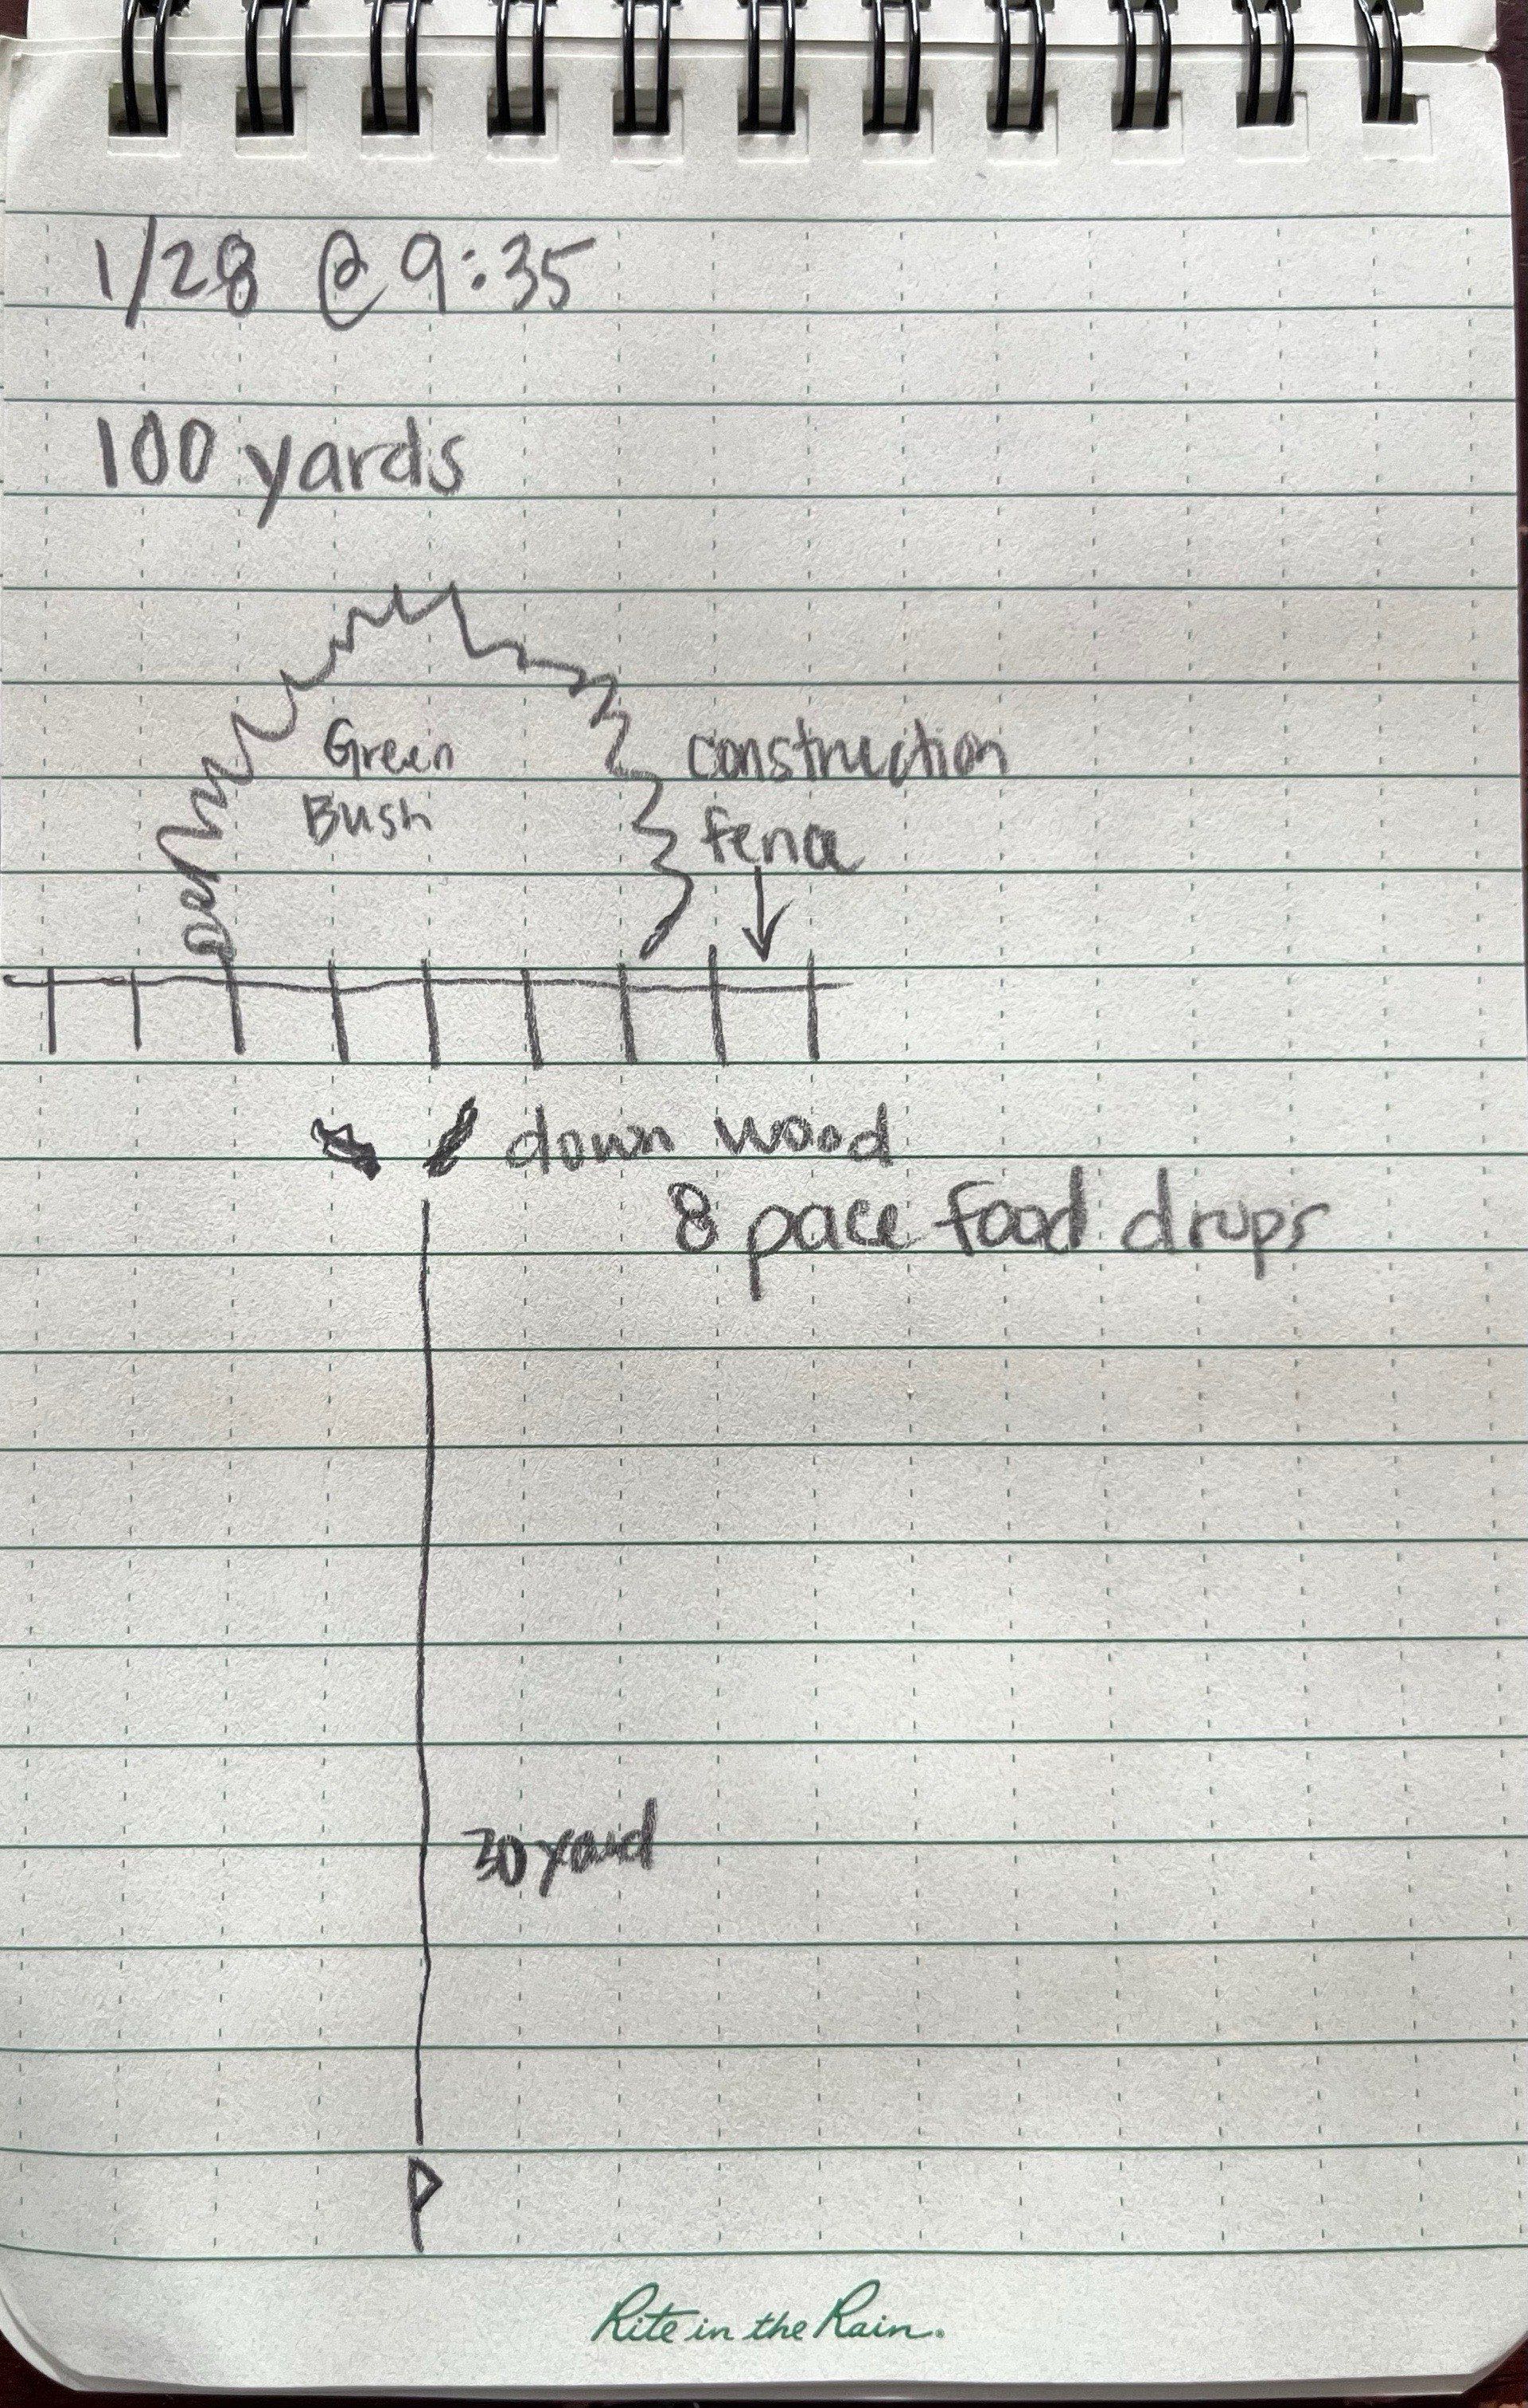 1/28 @ 9:35
100 yards
Green
Bush
construction
fence
down wood
8 pace food drops
30 yard
P
Rite in the Rain.